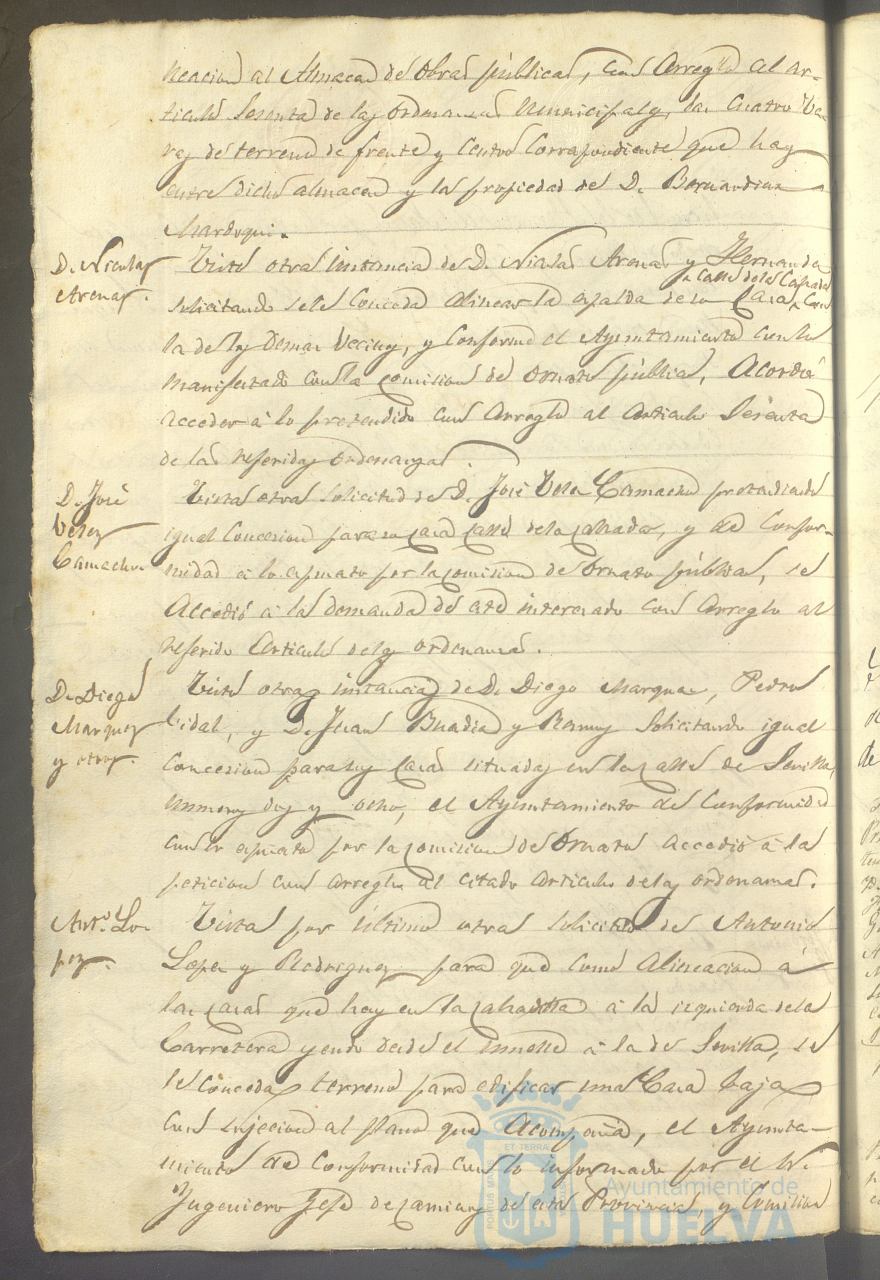 neacion al Almacen de Obras públicas, con Arreglo al Ar-
ticulo Sesenta de las Ordenanzas Municipales, las Cuatro Va-
ras de terreno de frente y Centro Correspondiente que hay
entre dicho almacen y la propiedad de D. Bernardino
Mardoqui.
D. Nicolas
Arenas.
Vista otra instancia de D. Nicolas Arenas y Hernandez
solicitando se le Conceda Alinear la espalda de su Casa Calle de la Calzada con
la de los Demas Vecinos, y Conforme el Ayuntamiento con lo
manifestado con la Comision de Ornato público, Acordó
acceder á lo pretendido con Arreglo al Articulo Sesenta
de las referidas Ordenanzas.
D. José
Velez
Camacho.
Vista otra solicitud de D. José Velez Camacho pretendiendo
igual Concesion para su casa calle de la calzada, y de Confor-
midad á lo por la comision de Ornato público, se
Accedió á la demanda de este interesado con Arreglo al
referido Articulo de las ordenanzas.
D. Diego
Marquez
y otros.
Vista otra instancia de D. Diego Marquez, Pedro
Vidal, y D. Juan y Ramos Solicitando igual
Concesion para sus Casas situadas en la calle de Sevilla,
numeros dos y ocho, el Ayuntamiento de Conformidad
con lo por la comision de Ornato accedió á la
peticion con arreglo al citado articulo de las ordenanzas.
Antº. Lo-
pez.
Vista por último otra solicitud de Antonio
Lopez y Rodriguez para que como Alineacion á
las casas que hay en la calzada á la izquierda de la
Carretera yendo desde el muelle á la de Sevilla, se
le Conceda terreno para edificar una Casa baja
con sujecion al plano que Acompaña, el Ayunta-
miento de Conformidad con lo informado por el Sr.
Ingeniero Jefe de caminos de esta Provincia, y Comision
Ayuntamiento de
HUELVA